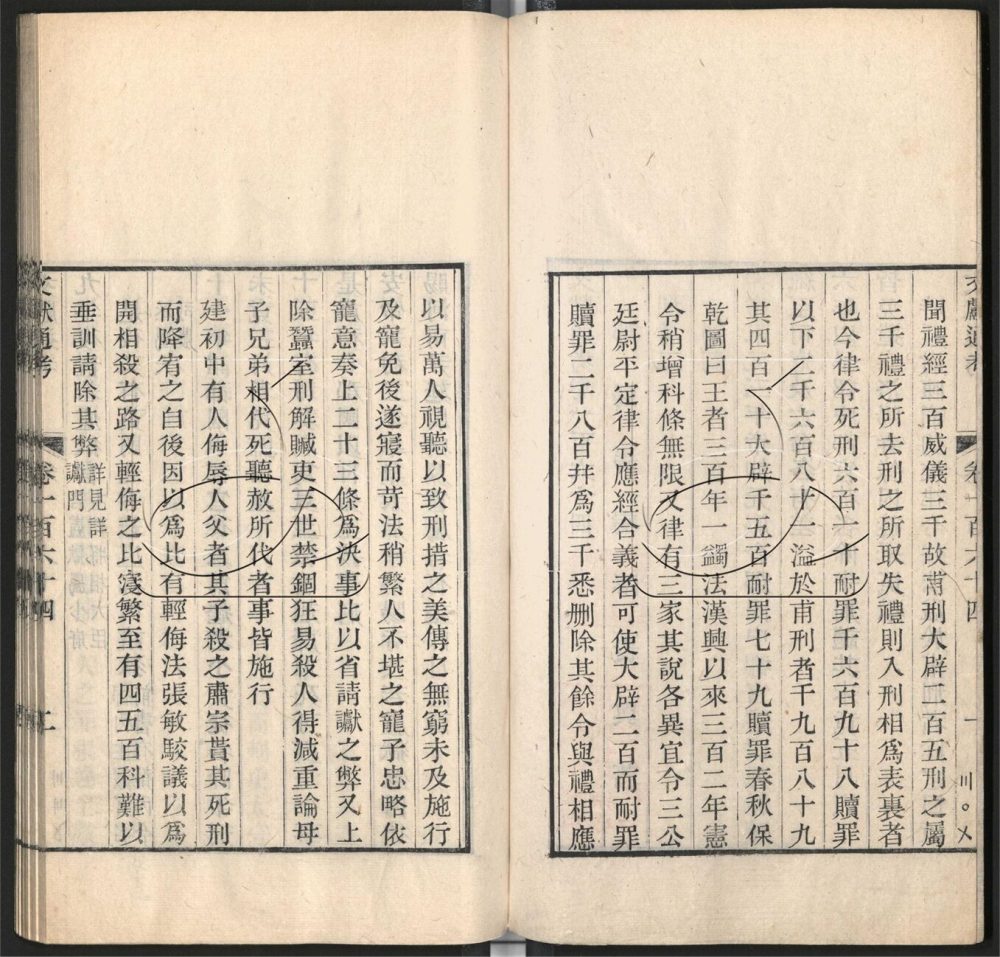 文獻通考 卷一百六十四 一
聞禮經三百威儀三千故甫刑大辟二百五刑之屬
三千禮之所去刑之所取失禮則入刑相爲表裏者
也今律令死刑六百一十耐罪千六百九十八贖罪
以下二千六百八十一溢於甫刑者千九百八十九
其四百一十大辟千五百耐罪七十九贖罪春秋保
乾圖曰王者三百年一蠲法漢興以來三百二年憲
令稍增科條無限又律有三家其說各異宜令三公
廷尉平定律令應經合義者可使大辟二百而耐罪
贖罪二千八百幷爲三千悉删除其餘令與禮相應
以易萬人視聽以致刑措之美傳之無窮未及施行
及寵免後遂寢而苛法稍繁人不堪之寵子忠略依
寵意奏上二十三條爲決事比以省請讞之弊又上
除蠶室刑解贓吏三世禁錮狂易殺人得減重論母
子兄弟相代死聽赦所代者事皆施行
建初中有人侮辱人父者其子殺之肅宗貰其死刑
而降宥之自後因以爲比有輕侮法張敏駮議以爲
開相殺之路又輕侮之比寖繁至有四五百科難以
垂訓請除其弊詳見詳讞門
文獻通考 卷一百六十四 二